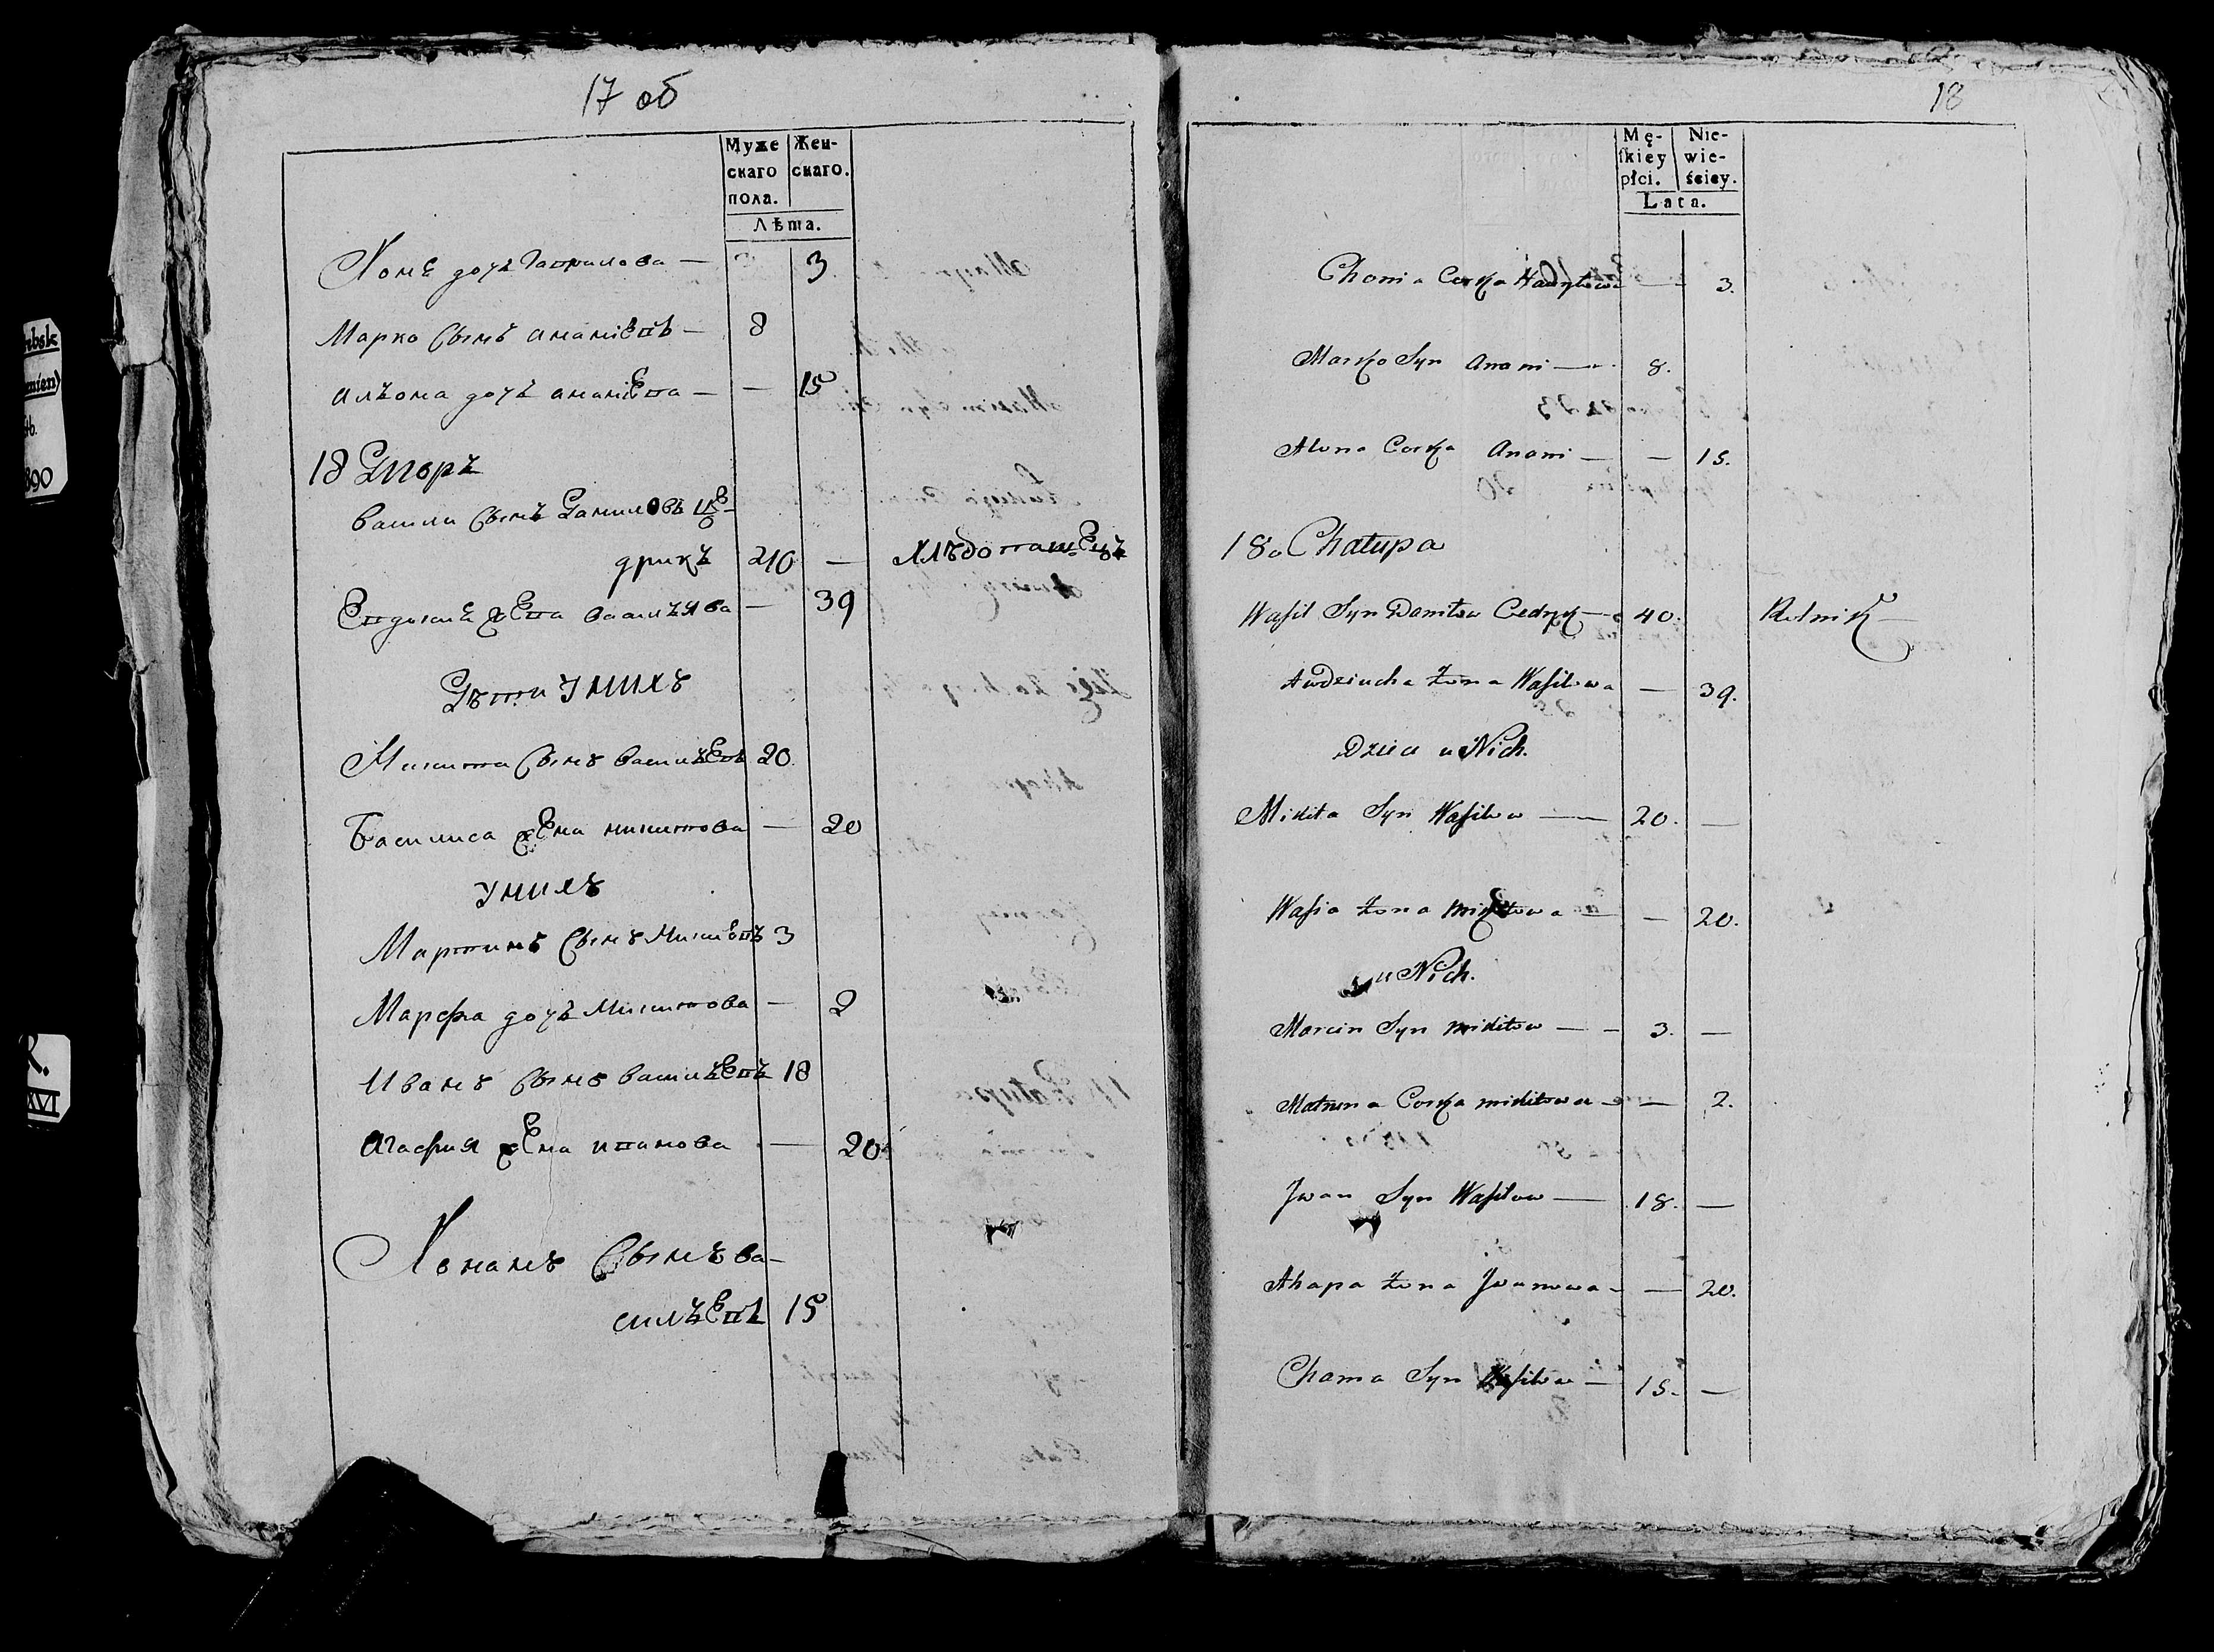 nbsk
mień)
890
XVI
17 об
Муже
скаго
пола.
Жен-
скаго.
Лѣта.
Хоне дочь Гаврилова — 3
Марко Сынъ ананіевъ — 8
алѣона дочь ананіева — — 15
18 Дворъ
василии Сынъ Даниловъ Це-
дрикъ 40 — Хлѣбопашецъ
Евдокия жена василѣява — 39
Дѣти Унихъ
Микита Сынъ василѣевъ 20.
Василиса жена микитова — 20
Унихъ
Мартинъ Сынъ Микитовъ 3
Марфа дочь Микитова — 2
Иванъ Сынъ василѣевъ 18
Агафия жена иванова — 20
Хонанъ Сынъ ва-
силѣевъ 15
18
Mę-
skiey
płci.
Nie-
wie-
ściey.
Lata.
Chonia Corka — 3.
Marko Syn Anani — 8.
Alona Corka Anani — — 15.
18. Chatupa
Wasil Syn Daniłow Cedryk — 40. Rolnik —
Awdziucha żona Wasilowa — 39.
Dzieci u Nich.
Mikita Syn Wasilow — 20. —
Wasia żona Mikitowa — — 20.
u Nich.
Marcin Syn Mikitow — — 3. —
Matruna Corka Mikitowa — — 2.
Jwan Syn Wasilow — 18. —
Ahapa żona Jwanowa — — 20.
Choma Syn Wasilow — 15. —